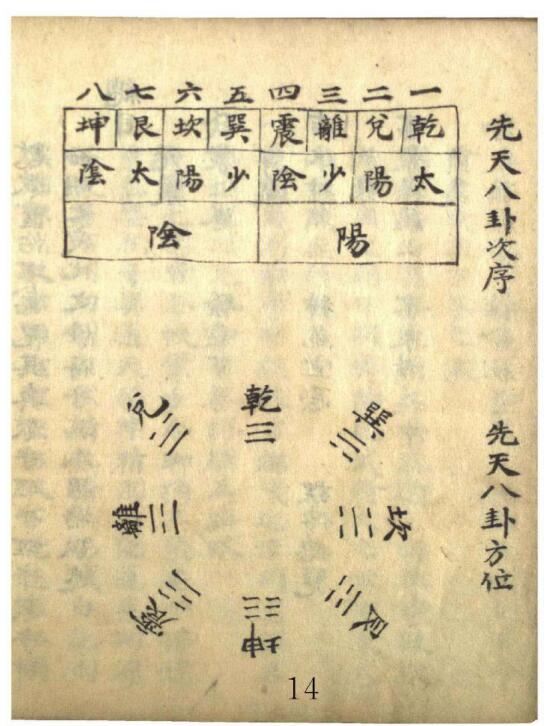 先天八卦次序
一二三四五六七八
乾兌離震巽坎艮坤
太陽少陰少陽太陰
陽陰
先天八卦方位
乾
兌
離
震
巽
坎
艮
坤
14